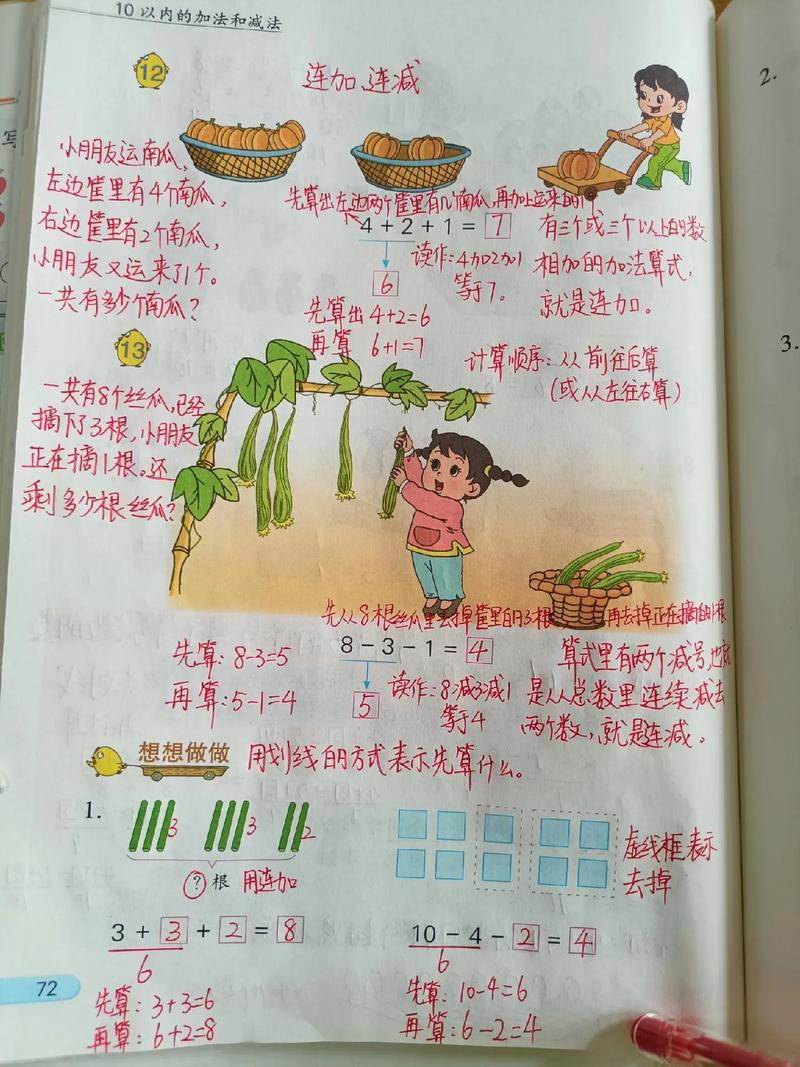 10 以内的加法和减法
12
连加、连减
2.
小朋友运南瓜,
左边筐里有4个南瓜,
右边筐里有2个南瓜,
小朋友又运来了1个。
一共有多少个南瓜?
先算出左边两个筐里有几个南瓜,再加上运来的1个
4 + 2 + 1 = 7
6
读作:4加2加1
等于7。
先算出 4+2=6
再算 6+1=7
有三个或三个以上的数
相加的加法算式,
就是连加。
3.
13
计算顺序:从前往后算
(或从左往右算)
一共有8个丝瓜,已经
摘下了3根,小朋友
正在摘1根。还
剩多少根丝瓜?
先从8根丝瓜里去掉筐里的3根
再去掉正在摘的1根
8 − 3 − 1 = 4
5
先算:8-3=5
再算:5-1=4
读作:8减3减1
等于4
算式里有两个减号,也就
是从总数里连续减去
两个数,就是连减。
想想做做
用划线的方式表示先算什么。
1.
3
3
2
? 根 用连加
虚线框表示
去掉
3 + 3 + 2 = 8
6
先算:3+3=6
再算:6+2=8
10 − 4 − 2 = 4
6
先算:10-4=6
再算:6-2=4
72